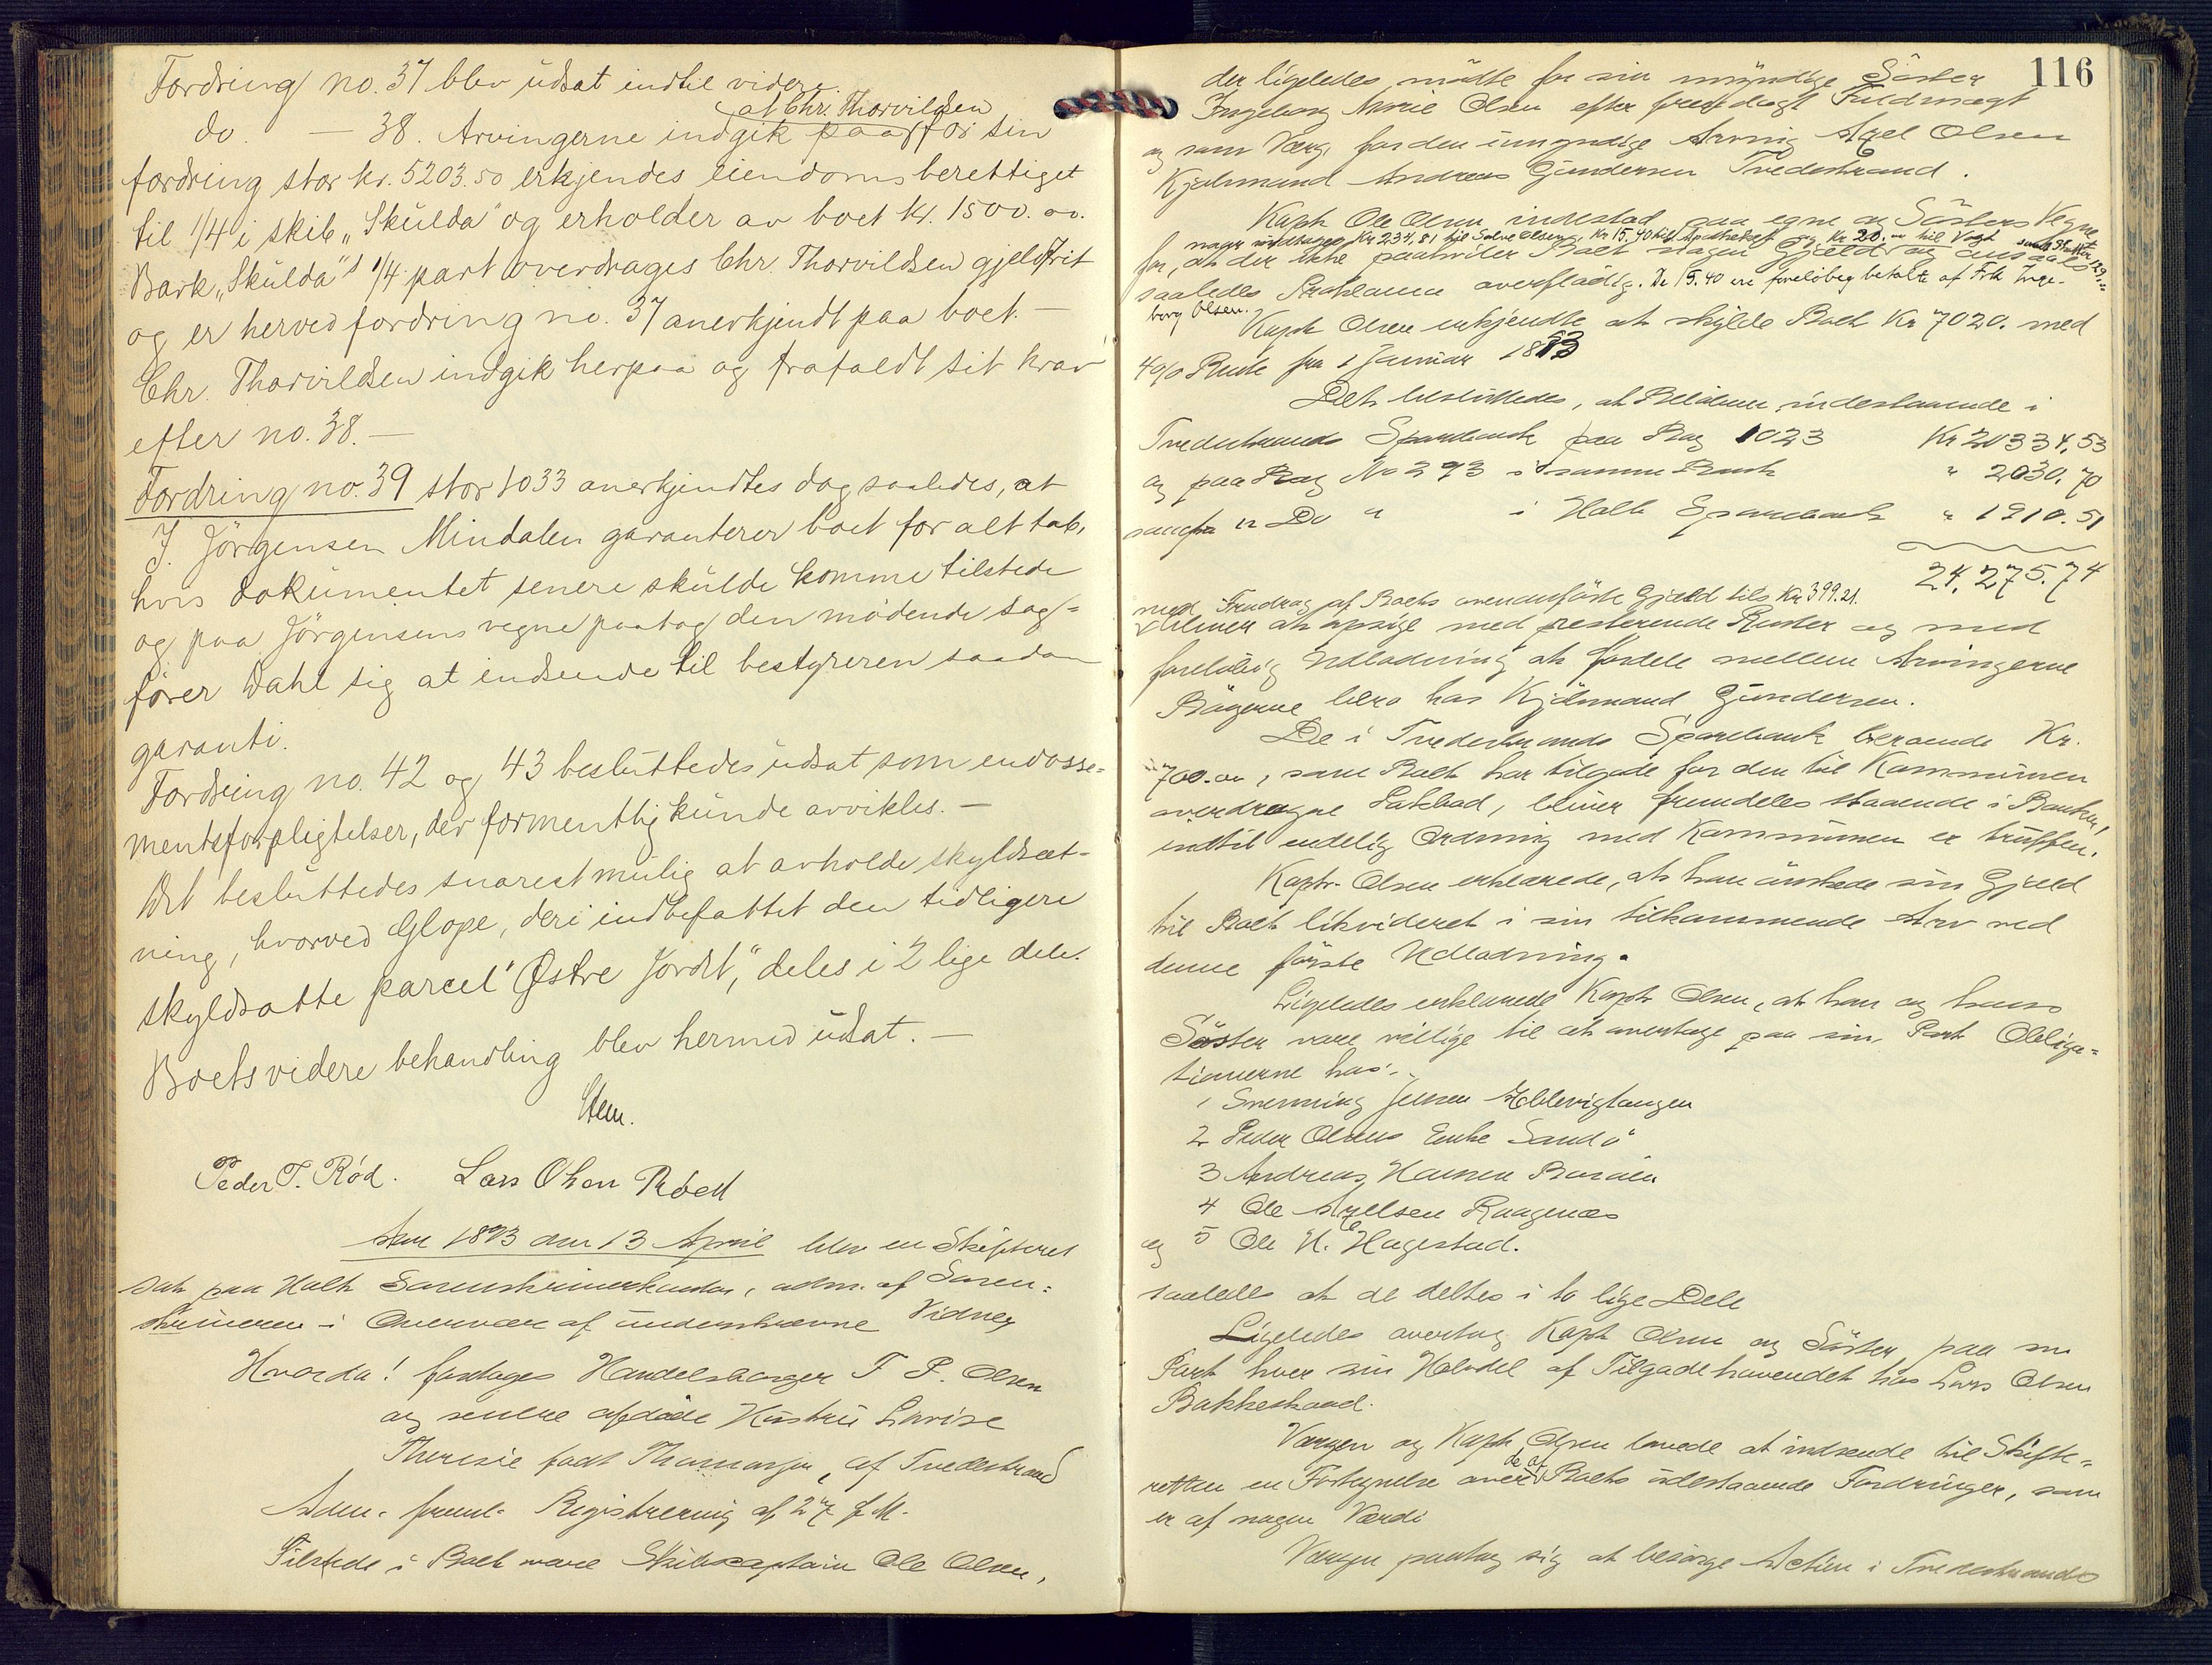 Fordring no. 37 blev udsat indtil videre.
at Chr. Thorvildsen
do. — 38. Arvingerne indgik paa for sin
fordring stor kr. 5203.50 erkjendes eiendomsberettiget
til 1/4 i skib „Skulda" og erholder av boet kr. 1500.00.
Bark „Skulda"s 1/4 part overdrages Chr. Thorvildsen gjeldfrit
og er herved fordring no. 37 anerkjendt paa boet. —
Chr. Thorvildsen indgik herpaa og frafaldt sit krav
efter no. 38. —
Fordring no. 39 stor 1033 anerkjendtes dog saaledes, at
J. Jörgensen Mindalen garanterer boet for alt tab,
hvis dokumentet senere skulde komme tilstede
og paa Jörgensens vegne paatog den mödende sag=
förer Dahl sig at indsende til bestyreren saadan
garanti.
Fordring no. 42 og 43 besluttedes udsat som endosse=
mentsforpligtelser, der formentlig kunde avvikles. —
Det besluttedes snarest mulig at avholde skyldsæt-
ning, hvorved Glope, deri indbefattet den tidligere
skyldsatte parcel "Østre Jordet," deles i 2 lige dele.
Boets videre behandling blev hermed udsat. —
Stem.
Peder T. Röd. Lars Olsen Röed
Aar 1893 den 13 April blev en Skifteret
sat paa Holt Sorenskriverkontor, adm. af Soren=
skriveren i Overvær af underskrevne Vidner
Hvorda! foretages Handelsborger T. P. Olsen
og senere afdöde Hustru Lovise
Theresie født Thomassen, af Tvedestrand
Adm. freml. Registrering af 27 f. M.
Tilstede i Boet vare Skibscaptain Ole Olsen,
116
der ligeledes mödte for sin myndige Söster
Ingeborg Marie Olsen efter fremlagt Fuldmagt
og som Værge for den umyndige Arving Axel Olsen
Kjöbmand Andreas Gundersen Tvedestrand.
Kapt Ole Olsen indestod paa egne og Sösters Vegne
naar undtages Kr 234.81 til Solve Olsen, Kr 15.40 til Apotheket og Kr 20.00 til Vogt samt
for, at der ikke paahviler Boet nogen Gjæld og ansaaes
saaledes Proklama overflödig. De 15.40 ere foreløbig betalte af Frk Inge-
borg Olsen.
Kapt Olsen erkjendte at skylde Boet Kr 7020. med
4% Rente fra 1 Januar 1893
Det besluttedes, at Belöbene indestaaende i
Tvedestrands Sparebank paa Bog 1023 Kr 20334,53
og paa Bog No 293 i samme Bank " 2030.70
samt paa Do " i Holt Sparebank " 1910.51
24,275.74
med Fradrag af Boets ovenanførte Gjæld tils Kr 399.21.
bliver at opsige med resterende Renter og med
foreløbig Udlodning at fordele mellem Arvingerne
Bögerne bero hos Kjöbmand Gundersen.
De i Tvedestrands Sparebank beroende Kr.
700.00, som Boet har tilgode for den til Kommunen
overdragne Patebod, bliver fremdeles staaende i Banken,
indtil endelig Ordning med Kommunen er truffen.
Kapt. Olsen erklærede, at han önskede sin Gjæld
til Boet likvideret i sin tilkommende Arv ved
denne förste Udlodning.
Ligeledes erklærede Kapt Olsen, at han og hans
Söster vare villige til at overtage paa sin Part Obliga=
tionerne hos:
1 Jensen
2 Peder Olsens Enke Sandö
3 Andreas Hansen Boröen
4 Ole Axelsen Raagenæs
og 5 Ole N. Hagestad.
saaledes at de deltes i to lige Dele
Ligeledes overtog Kapt Olsen og Söster paa sin
Part hver sin Halvdel af Tilgodehavendet hos Lars Olsen
Bakkeskaad.
Værgen og Kapt. Olsen lovede at indsende til Skifte=
retten en Fortegnelse over de af Boets udestaaende Fordringer, som
er af nogen Værdi
Værgen paatog sig at besörge Actien i Tvedestrands